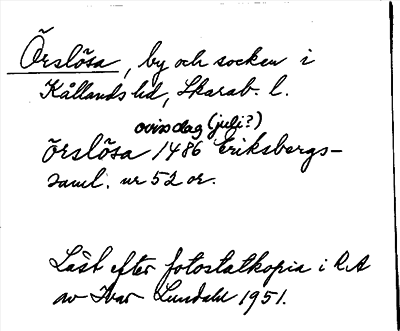 Örslösa, by och socken i
Kållands hd, Skarab. l.
oviss dag (juli?)
Örslösa 1486 Eriksbergs-
saml. nr 52 or.
Läst efter fotostatkopia i RA
av Ivar Lundahl 1951.